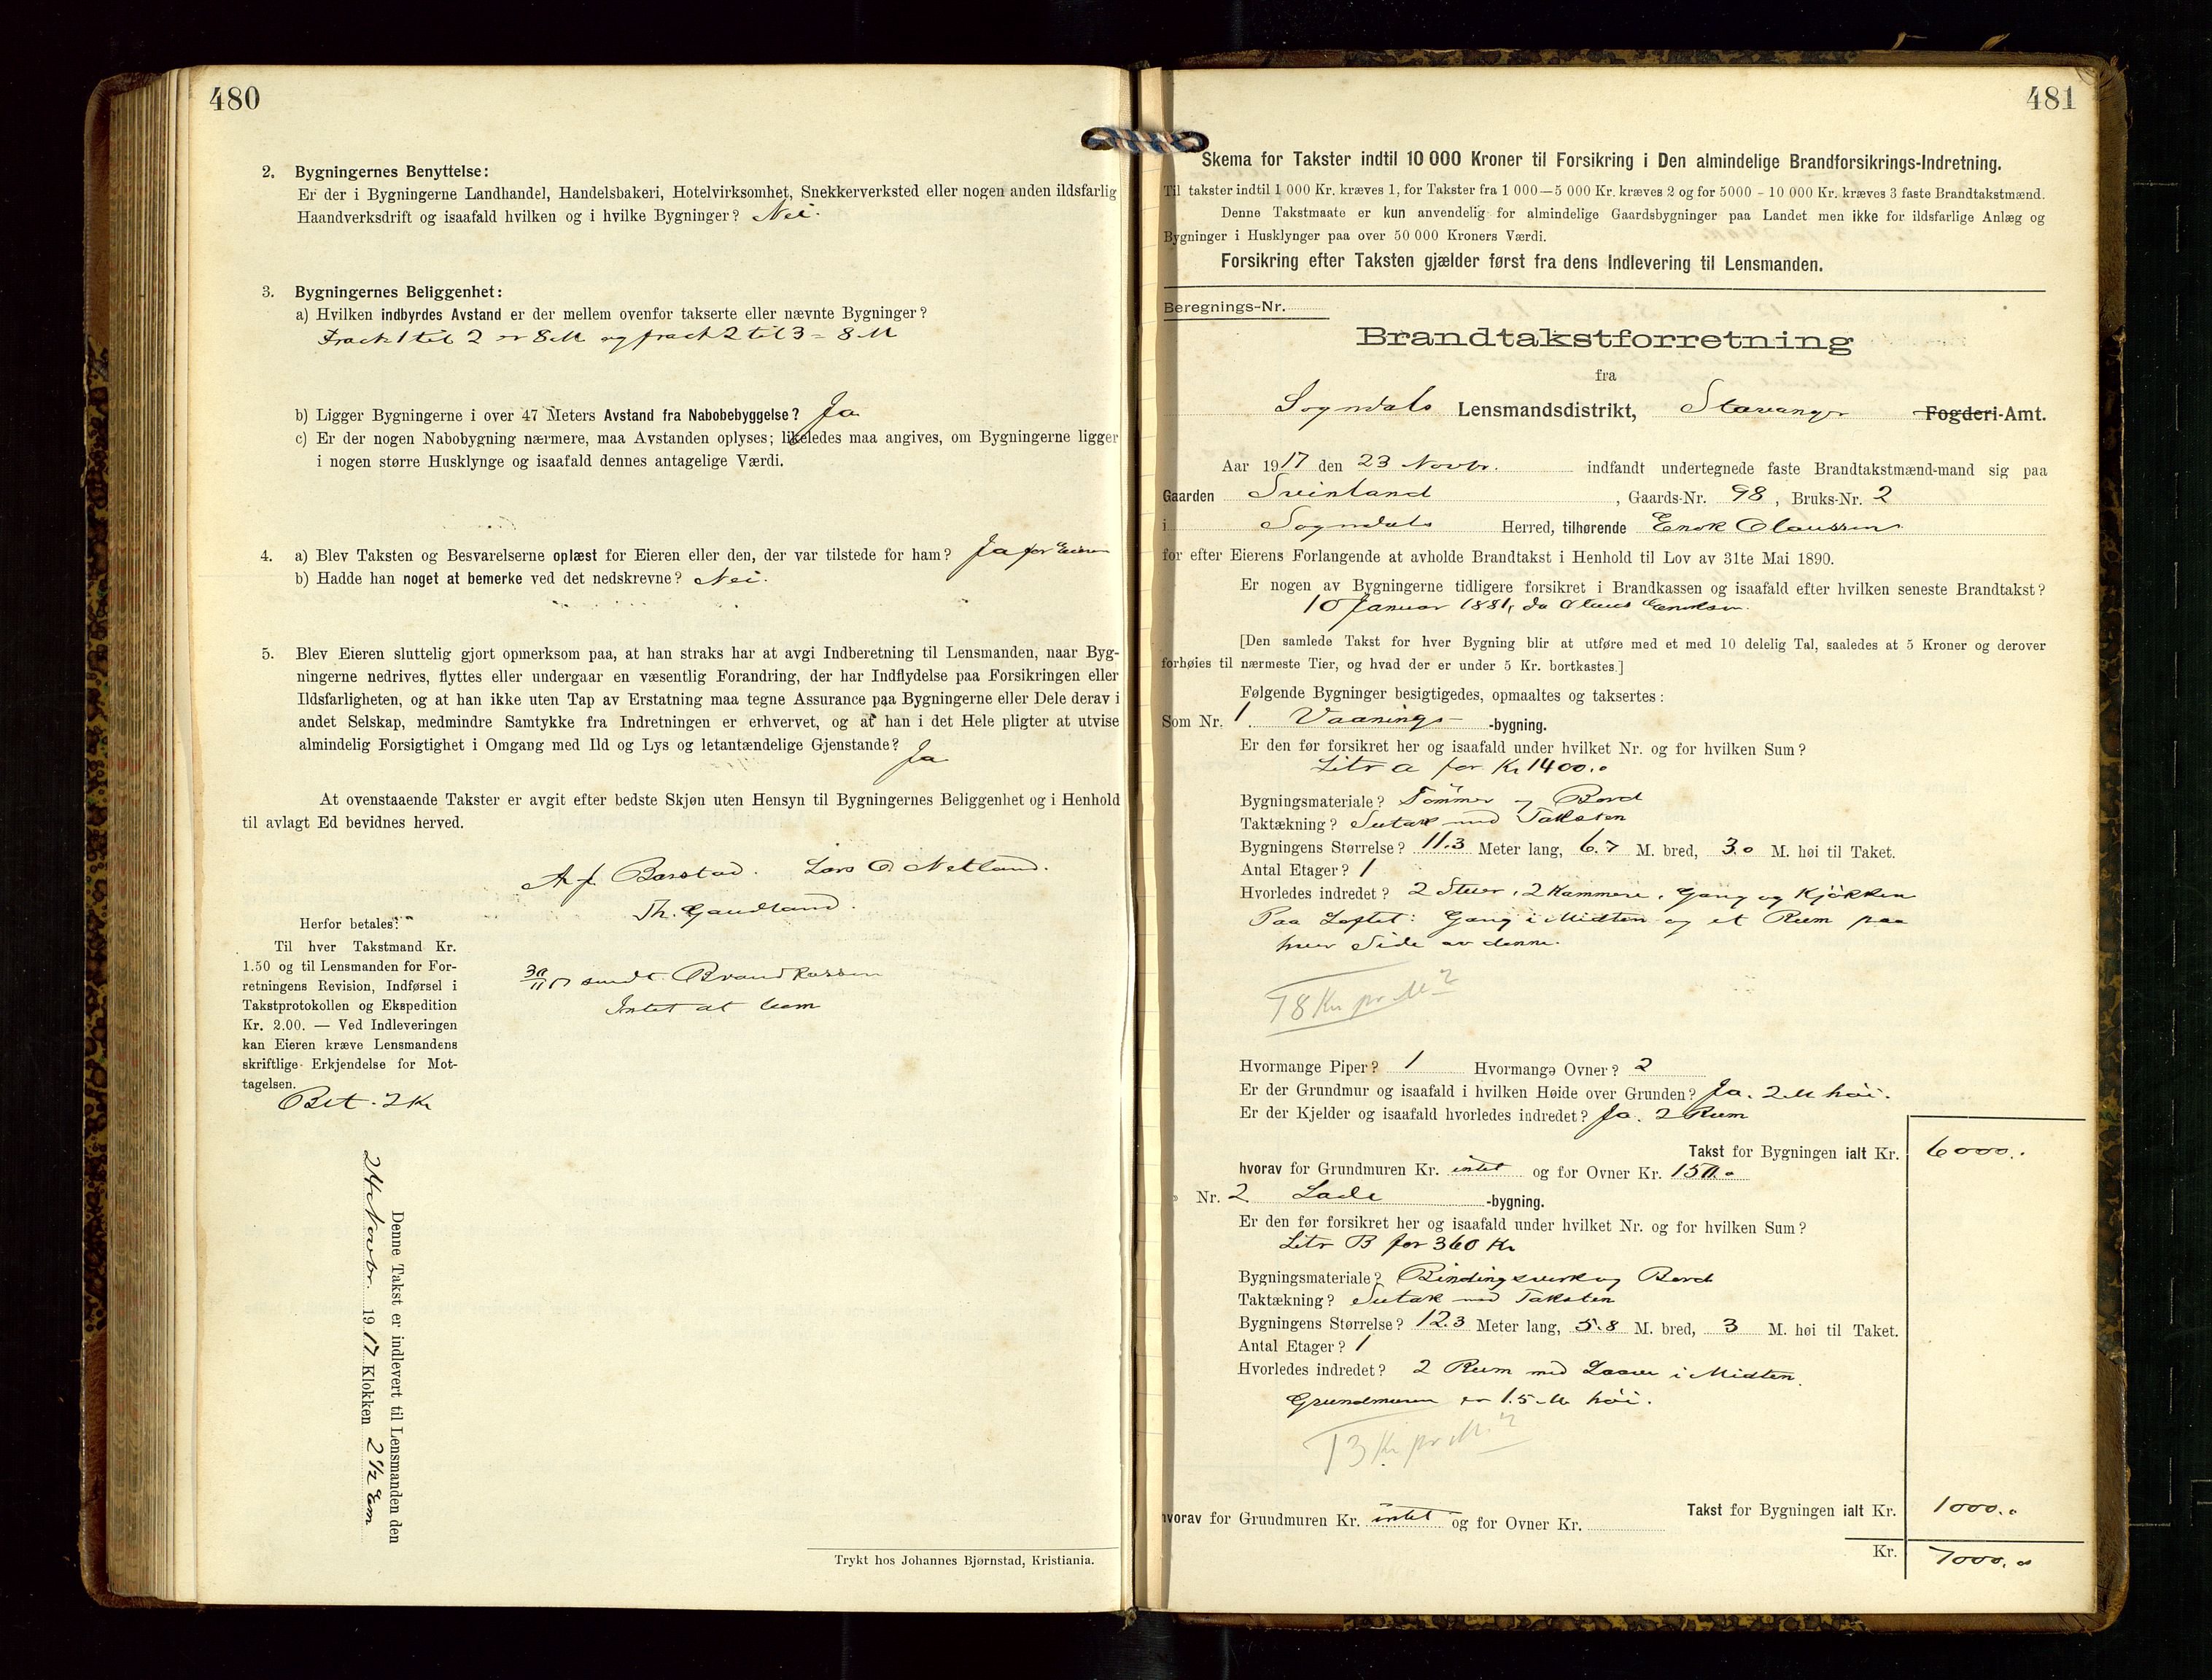 480
2. Bygningernes Benyttelse:
Er der i Bygningerne Landhandel, Handelsbakeri, Hotelvirksomhet, Snekkerverksted eller nogen anden ildsfarlig
Haandverksdrift og isaafald hvilken og i hvilke Bygninger? Nei.
3. Bygningernes Beliggenhet:
a) Hvilken indbyrdes Avstand er der mellem ovenfor takserte eller nævnte Bygninger?
1 til 2 er 8 M og 2 til 3 = 8 M
b) Ligger Bygningerne i over 47 Meters Avstand fra Nabobebyggelse? Ja
c) Er der nogen Nabobygning nærmere, maa Avstanden oplyses; likeledes maa angives, om Bygningerne ligger
i nogen større Husklynge og isaafald dennes antagelige Værdi.
4. a) Blev Taksten og Besvarelserne oplæst for Eieren eller den, der var tilstede for ham? Ja for Eieren
b) Hadde han noget at bemerke ved det nedskrevne? Nei.
5. Blev Eieren sluttelig gjort opmerksom paa, at han straks har at avgi Indberetning til Lensmanden, naar Byg-
ningerne nedrives, flyttes eller undergaar en væsentlig Forandring, der har Indflydelse paa Forsikringen eller
Ildsfarligheten, og at han ikke uten Tap av Erstatning maa tegne Assurance paa Bygningerne eller Dele derav i
andet Selskap, medmindre Samtykke fra Indretningen er erhvervet, og at han i det Hele pligter at utvise
almindelig Forsigtighet i Omgang med Ild og Lys og letantændelige Gjenstande? Ja
At ovenstaaende Takster er avgit efter bedste Skjøn uten Hensyn til Bygningernes Beliggenhet og i Henhold
til avlagt Ed bevidnes herved.
Lars O. Netland.
Th. Gaudland.
Herfor betales:
Til hver Takstmand Kr.
1.50 og til Lensmanden for For-
retningens Revision, Indførsel i
Takstprotokollen og Ekspedition
Kr. 2.00. — Ved Indleveringen
kan Eieren kræve Lensmandens
skriftlige Erkjendelse for Mot-
tagelsen.
Bet. 2 Kr
30/11 17 sendt Brandkassen
Intet at bem
Denne Takst er indlevert til Lensmanden den
24 Novbr. 1917 Klokken 2 1/2 Em
Trykt hos Johannes Bjørnstad, Kristiania.
481
Skema for Takster indtil 10 000 Kroner til Forsikring i Den almindelige Brandforsikrings-Indretning.
Til takster indtil 1 000 Kr. kræves 1, for Takster fra 1 000—5 000 Kr. kræves 2 og for 5000 - 10 000 Kr. kræves 3 faste Brandtakstmænd.
Denne Takstmaate er kun anvendelig for almindelige Gaardsbygninger paa Landet men ikke for ildsfarlige Anlæg og
Bygninger i Husklynger paa over 50 000 Kroners Værdi.
Forsikring efter Taksten gjælder først fra dens Indlevering til Lensmanden.
Beregnings-Nr.
Brandtakstforretning
fra
Sogndals Lensmandsdistrikt, Stavanger Fogderi-Amt.
Aar 1917 den 23 Novbr. indfandt undertegnede faste Brandtakstmænd-mand sig paa
Gaarden Sveinland, Gaards-Nr. 98, Bruks-Nr. 2
i Sogndals Herred, tilhørende Enok Olaussen
for efter Eierens Forlangende at avholde Brandtakst i Henhold til Lov av 31te Mai 1890.
Er nogen av Bygningerne tidligere forsikret i Brandkassen og isaafald efter hvilken seneste Brandtakst?
10 Januar 1881, da Olaus
[Den samlede Takst for hver Bygning blir at utføre med et med 10 delelig Tal, saaledes at 5 Kroner og derover
forhøies til nærmeste Tier, og hvad der er under 5 Kr. bortkastes.]
Følgende Bygninger besigtigedes, opmaaltes og taksertes:
Som Nr. 1. Vaanings -bygning.
Er den før forsikret her og isaafald under hvilket Nr. og for hvilken Sum?
Litr a for Kr 1400.
Bygningsmateriale? Tömmer og Bord
Taktækning? Sutak med Taksten
Bygningens Størrelse? 11.3 Meter lang, 6.7 M. bred, 3.0 M. høi til Taket.
Antal Etager? 1
Hvorledes indredet? 2 Stuer, 2 Kammere, Gang og Kjökken
Paa Loftet: Gang i Midten og et Rum paa
hver Side av denne.
78 Kr pr M2
Hvormange Piper? 1 Hvormange Ovner? 2
Er der Grundmur og isaafald i hvilken Høide over Grunden? Ja. 2 M höi.
Er der Kjelder og isaafald hvorledes indredet? Ja. 2 Rum
Takst for Bygningen ialt Kr. 6000.
hvorav for Grundmuren Kr. intet og for Ovner Kr. 150.
» Nr. 2 Lade -bygning.
Er den før forsikret her og isaafald under hvilket Nr. og for hvilken Sum?
Litr B for 360 Kr
Bygningsmateriale? Bindingsverk og Bord
Taktækning? Sutak med Taksten
Bygningens Størrelse? 12.3 Meter lang, 5.8 M. bred, 3 M. høi til Taket.
Antal Etager? 1
Hvorledes indredet? 2 Rum med Laave i Midten.
Grundmuren er 1.5 M höi.
13 Kr pr M.2
Takst for Bygningen ialt Kr. 1000.
hvorav for Grundmuren Kr. intet og for Ovner Kr.
Kr. 7000.